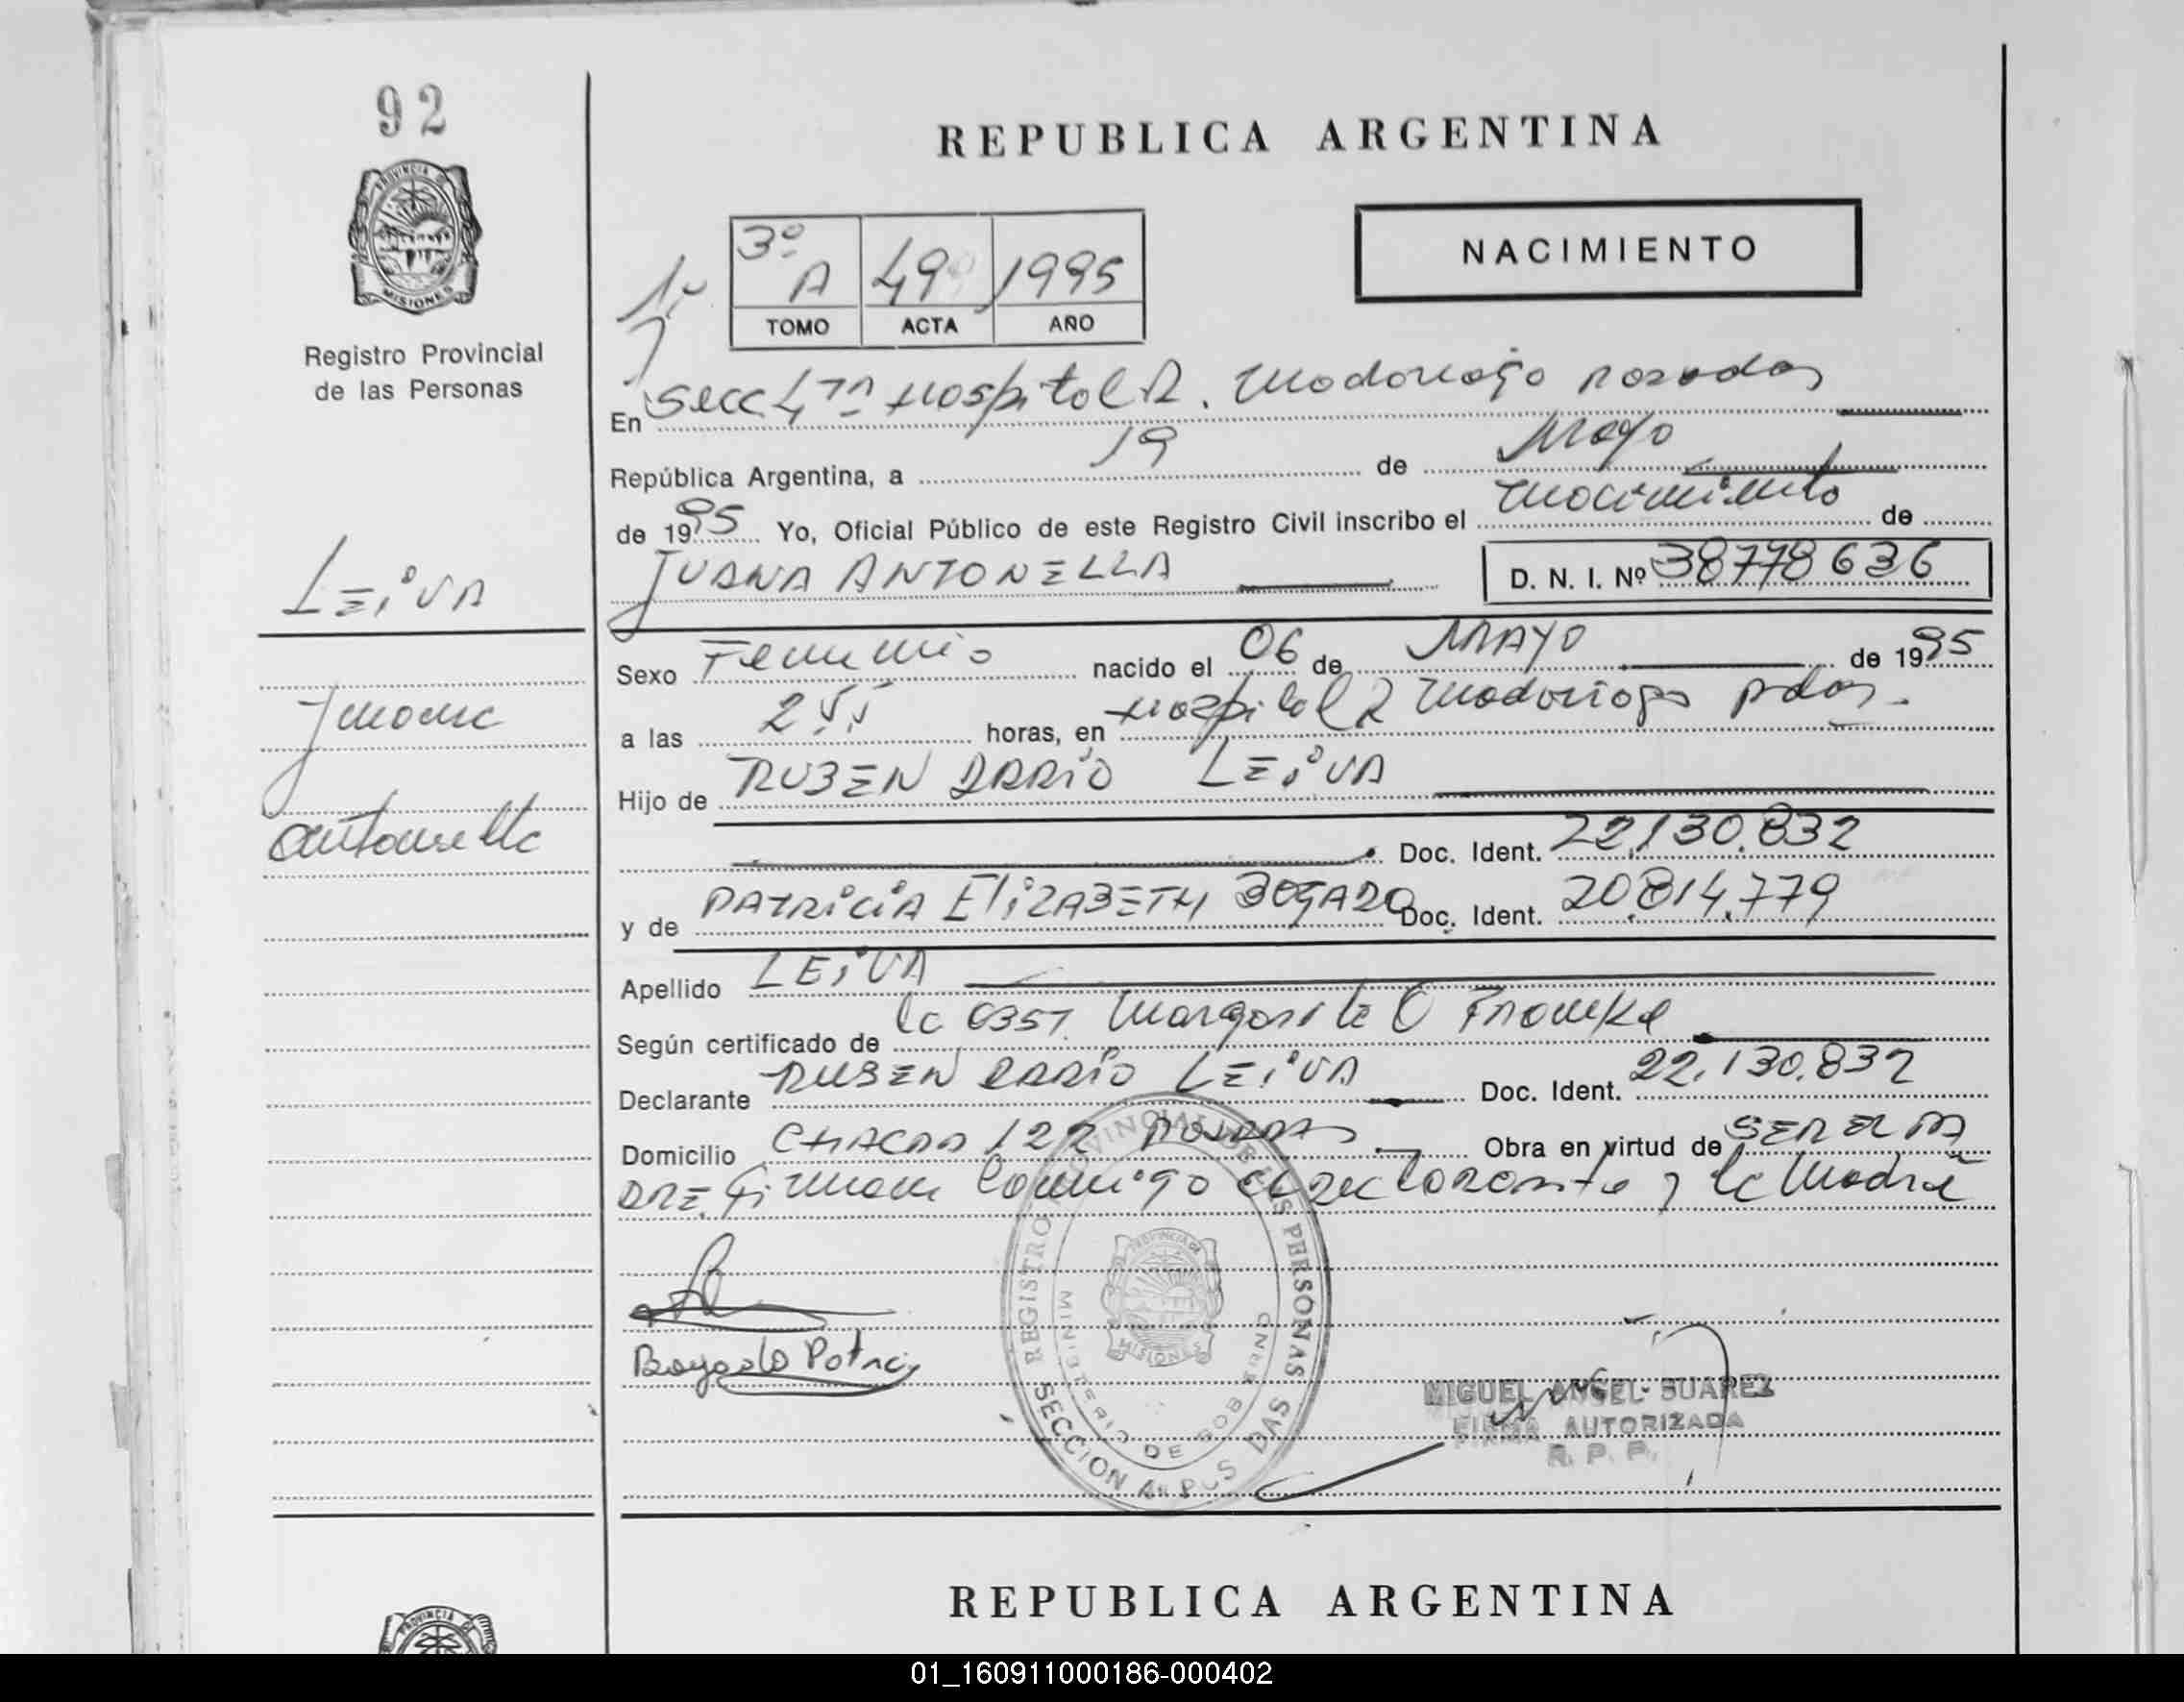 92
PROVINCIA DE
MISIONES
Registro Provincial
de las Personas
LEiVA
Juana
Antonella
REPUBLICA ARGENTINA
NACIMIENTO
3º A 49 1995
TOMO ACTA AÑO
En Secc 4ta Hospital R. Madariaga Posadas
República Argentina, a 19 de Mayo
de 1995 Yo, Oficial Público de este Registro Civil inscribo el nacimiento de
JUANA ANTONELLA D. N. I. Nº 38778636
Sexo Femenino nacido el 06 de MAYO de 1995
a las horas, en Hospital R Madariaga Pdas.
Hijo de RUBEN DARIO LEiVA
Doc. Ident. 22.130.832
y de PATRiCiA EliZABETH BOGADO Doc. Ident. 20.814.779
Apellido LEiVA
Según certificado de la Margarita
Declarante RUBEN DARIO LEiVA Doc. Ident. 22.130.832
Domicilio CHACRA 122 POSADAS Obra en virtud de SER EL PA
DRE. Firman conmigo el declarante y la Madre
Bogado Patricia
REGISTRO PROVINCIAL DE LAS PERSONAS
MINISTERIO DE GOBIERNO
PROVINCIA DE
MISIONES
SECCION 4ª POSADAS
MIGUEL ANGEL SUAREZ
FIRMA AUTORIZADA
R. P. P.
REPUBLICA ARGENTINA
PROVINCIA
01_160911000186-000402